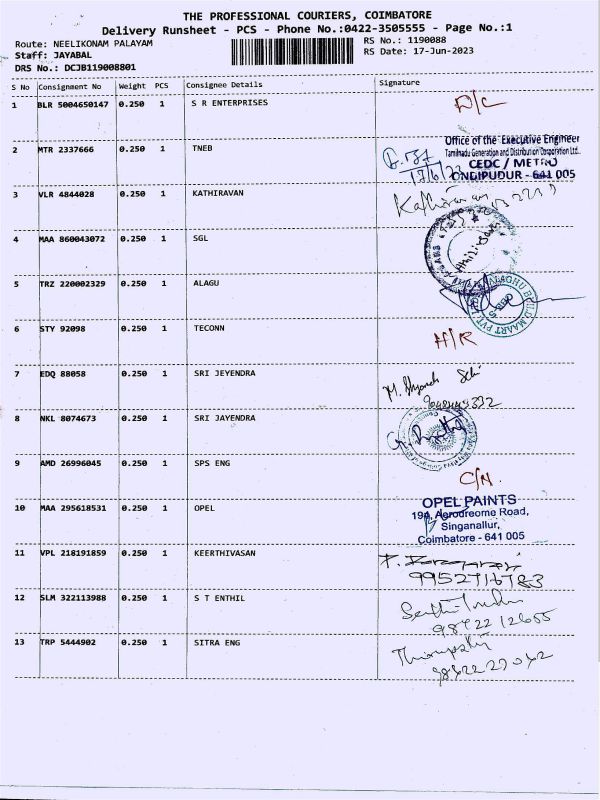 THE PROFESSIONAL COURIERS, COIMBATORE
Delivery Runsheet - PCS - Phone No.:0422-3505555 - Page No.:1
Route: NEELIKONAM PALAYAM
RS No.: 1190088
Staff: JAYABAL
RS Date: 17-Jun-2023
DRS No.: DCJB119008801
S No Consignment No Weight PCS Consignee Details Signature
1 BLR 5004650147 0.250 1 S R ENTERPRISES D/C
Office of the Executive Engineer
Tamilnadu Generation and Distribution Corporation Ltd.
2 MTR 2337666 0.250 1 TNEB CEDC / METRO
ONDIPUDUR - 641 005
3 VLR 4844028 0.250 1 KATHIRAVAN Kathiravan
4 MAA 860043072 0.250 1 SGL
5 TRZ 220002329 0.250 1 ALAGU
6 STY 92098 0.250 1 TECONN A/R
7 EDQ 88058 0.250 1 SRI JEYENDRA
8 NKL 8074673 0.250 1 SRI JAYENDRA
9 AMD 26996045 0.250 1 SPS ENG C/N
10 MAA 295618531 0.250 1 OPEL OPEL PAINTS
19A, Aerodreome Road,
Singanallur,
Coimbatore - 641 005
11 VPL 218191859 0.250 1 KEERTHIVASAN
9952716783
12 SLM 322113988 0.250 1 S T ENTHIL
98422 12655
13 TRP 5444902 0.250 1 SITRA ENG